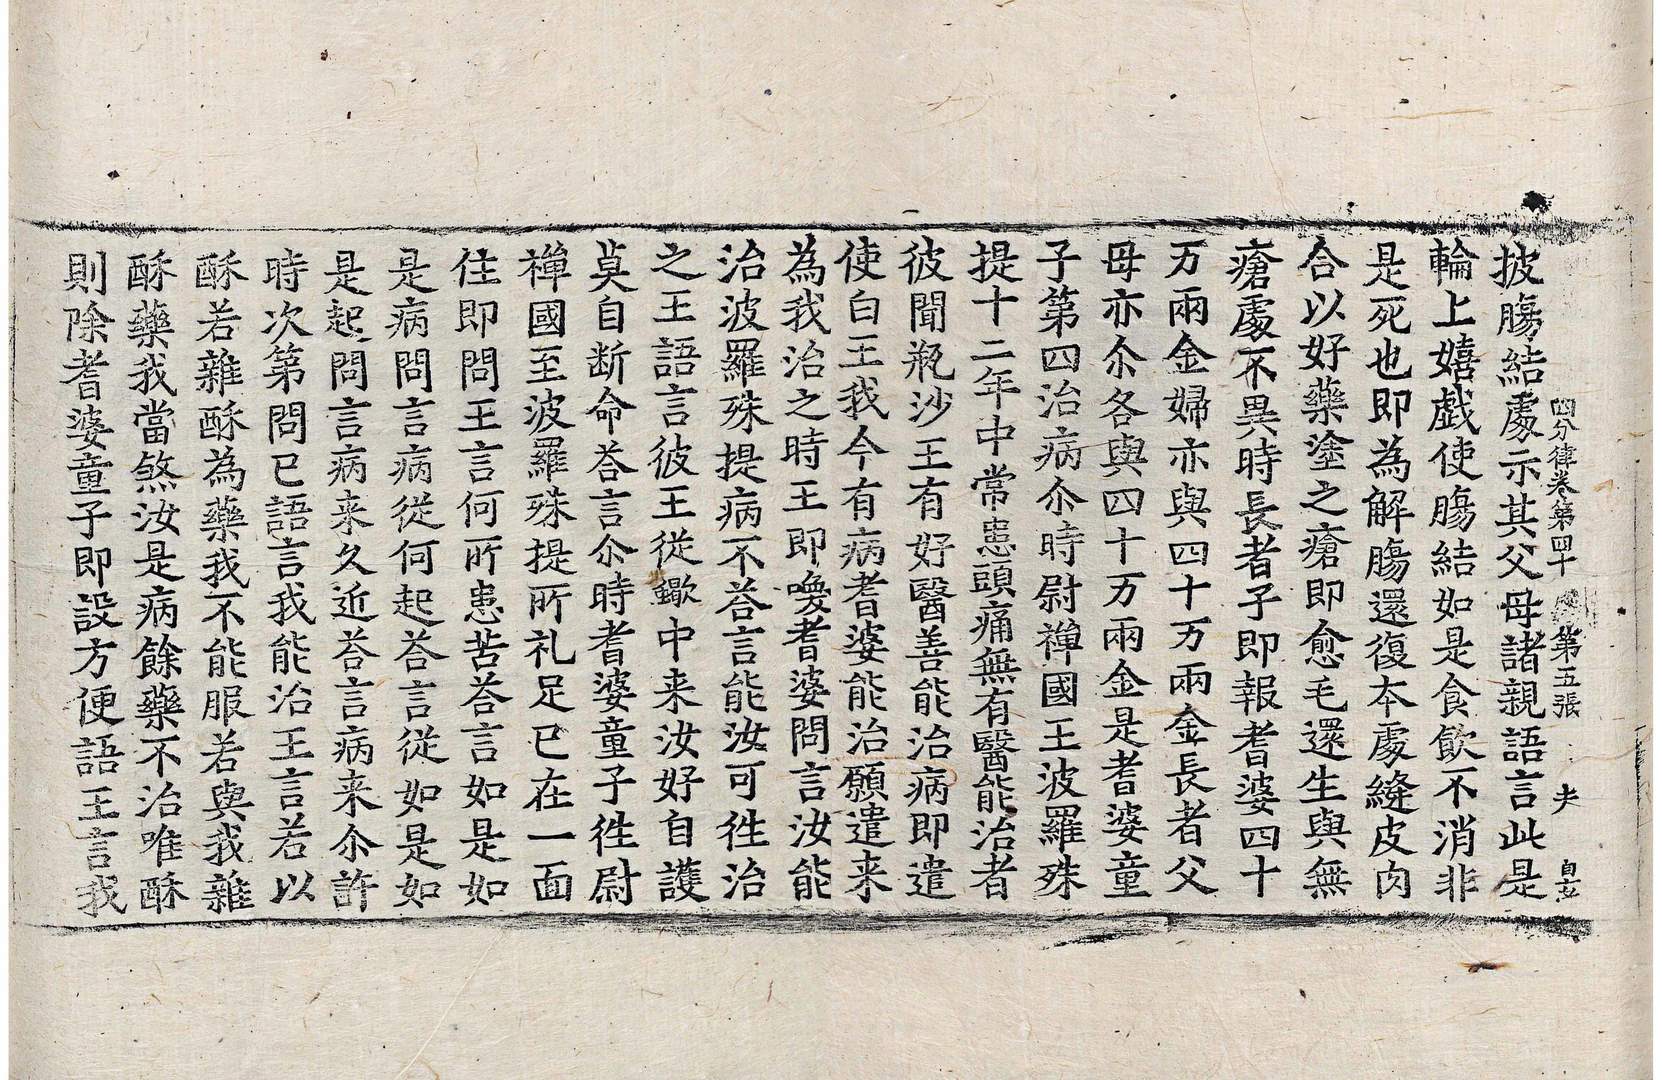 四分律卷第四十 第五張 夫
披膓結䖏示其父母諸親語言此是
輪上嬉戱使膓結如是食飮不消非
是死也即為解膓還復夲䖏縫皮肉
合以好藥塗之瘡即愈毛還生與無
瘡䖏不異時長者子即報耆婆四十
万兩金婦亦與四十万兩金長者父
母亦尒各與四十万兩金是耆婆童
子第四治病尒時尉禪國王波羅殊
提十二年中常患頭痛無有醫能治者
彼聞瓶沙王有好醫善能治病即遣
使白王我今有病耆婆能治願遣来
為我治之時王即喚耆婆問言汝能
治波羅殊提病不荅言能汝可徃治
之王語言彼王從蠍中来汝好自護
莫自断命荅言尒時耆婆童子徃尉
禪國至波羅殊提所礼足已在一面
住即問王言何所患苦荅言如是如
是病問言病從何起荅言從如是如
是起問言病来久近荅言病来尒許
時次第問已語言我能治王言若以
酥若雜酥為藥我不能服若與我雜
酥藥我當煞汝是病餘藥不治唯酥
則除耆婆童子即設方便語王言我